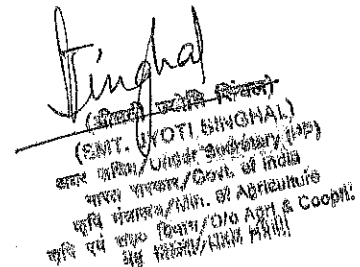 Singhal
(श्रीमती ज्योति सिंघल)
(SMT. JYOTI SINGHAL)
अवर सचिव/Under Secretary (PP)
भारत सरकार/Govt. of India
कृषि मंत्रालय/Min. of Agriculture
कृषि एवं सह० विभाग/O/o Agri & Coopn.